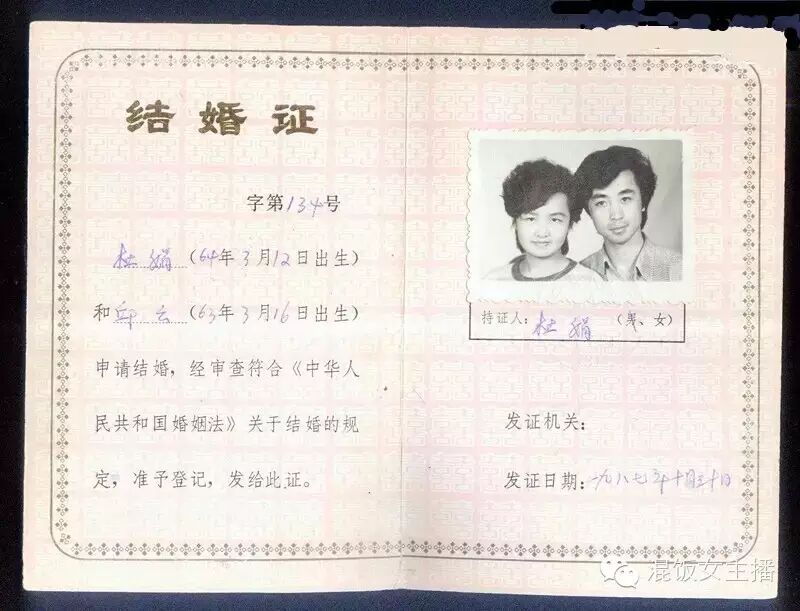 结婚证
字第134号
杜娟(64年3月12日出生)
和 云(63年3月16日出生)
申请结婚,经审查符合《中华人
民共和国婚姻法》关于结婚的规
定,准予登记,发给此证。
持证人:杜娟(男、女)
发证机关:
发证日期:一九八七年十月三十日
混饭女主播